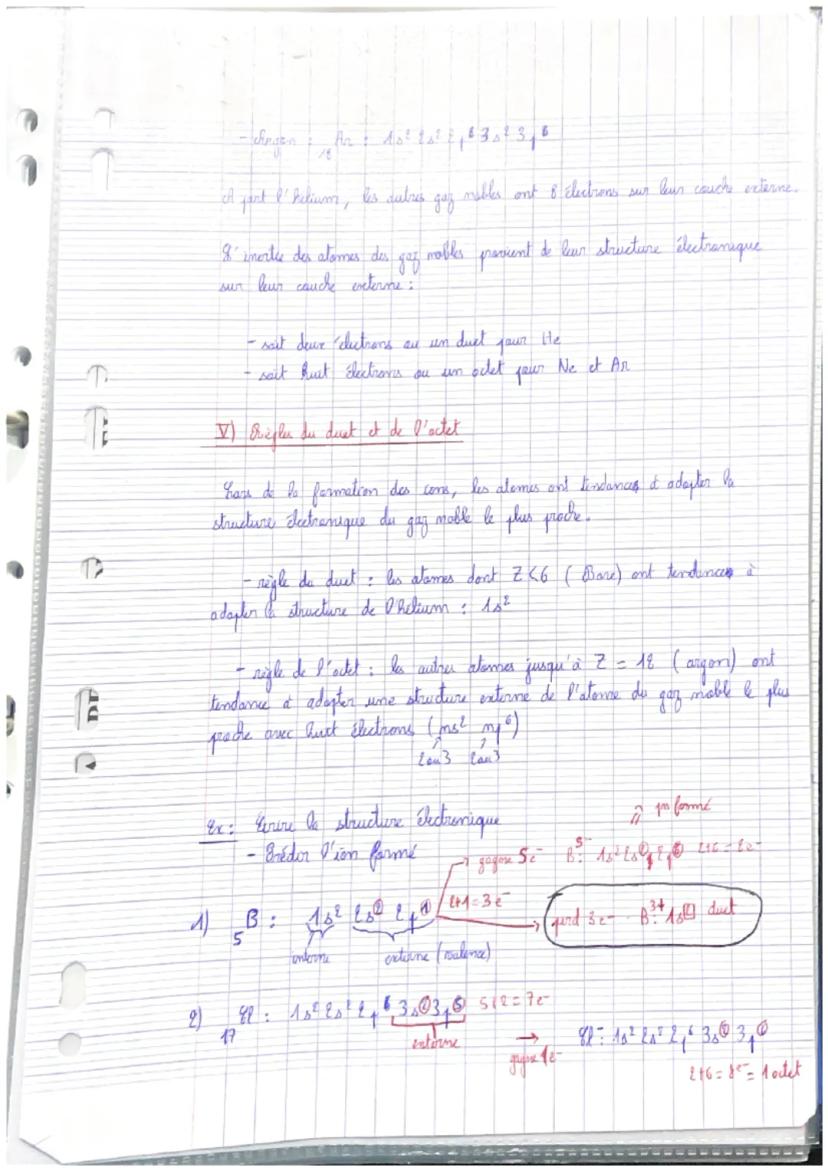 - Argon : ₁₈Ar : 1s² 2s² 2p⁶ 3s² 3p⁶
A part l'hélium, les autres gaz nobles ont 8 électrons sur leur couche externe.
L'inertie des atomes des gaz nobles provient de leur structure électronique
sur leur couche externe :
- soit deux électrons ou un duet pour He
- soit huit électrons ou un octet pour Ne et Ar
V) Règles du duet et de l'octet
Lors de la formation des ions, les atomes ont tendances à adopter la
structure électronique du gaz noble le plus proche.
- règle du duet : les atomes dont Z<6 (Bore) ont tendances à
adopter la structure de l'hélium : 1s²
- règle de l'octet : les autres atomes jusqu'à Z = 18 (argon) ont
tendance à adopter une structure externe de l'atome du gaz noble le plus
proche avec huit électrons (ns² np⁶)
2ou3 2ou3
Ex : Ecrire la structure électronique
- Prédir l'ion formé
ion formé
gagne 5e⁻ B⁵⁻: 1s² 2s² 2p⁶ 2+6=8e⁻
1) ₅B : 1s² 2s² 2p¹ 2+1=3e⁻
perd 3e⁻ B³⁺: 1s² duet
interne externe (valence)
2) ₁₇Cl : 1s² 2s² 2p⁶ 3s² 3p⁵ 5+2=7e⁻
externe
→ gagne 1e⁻ Cl⁻: 1s² 2s² 2p⁶ 3s² 3p⁶
2+6=8e⁻=1 octet